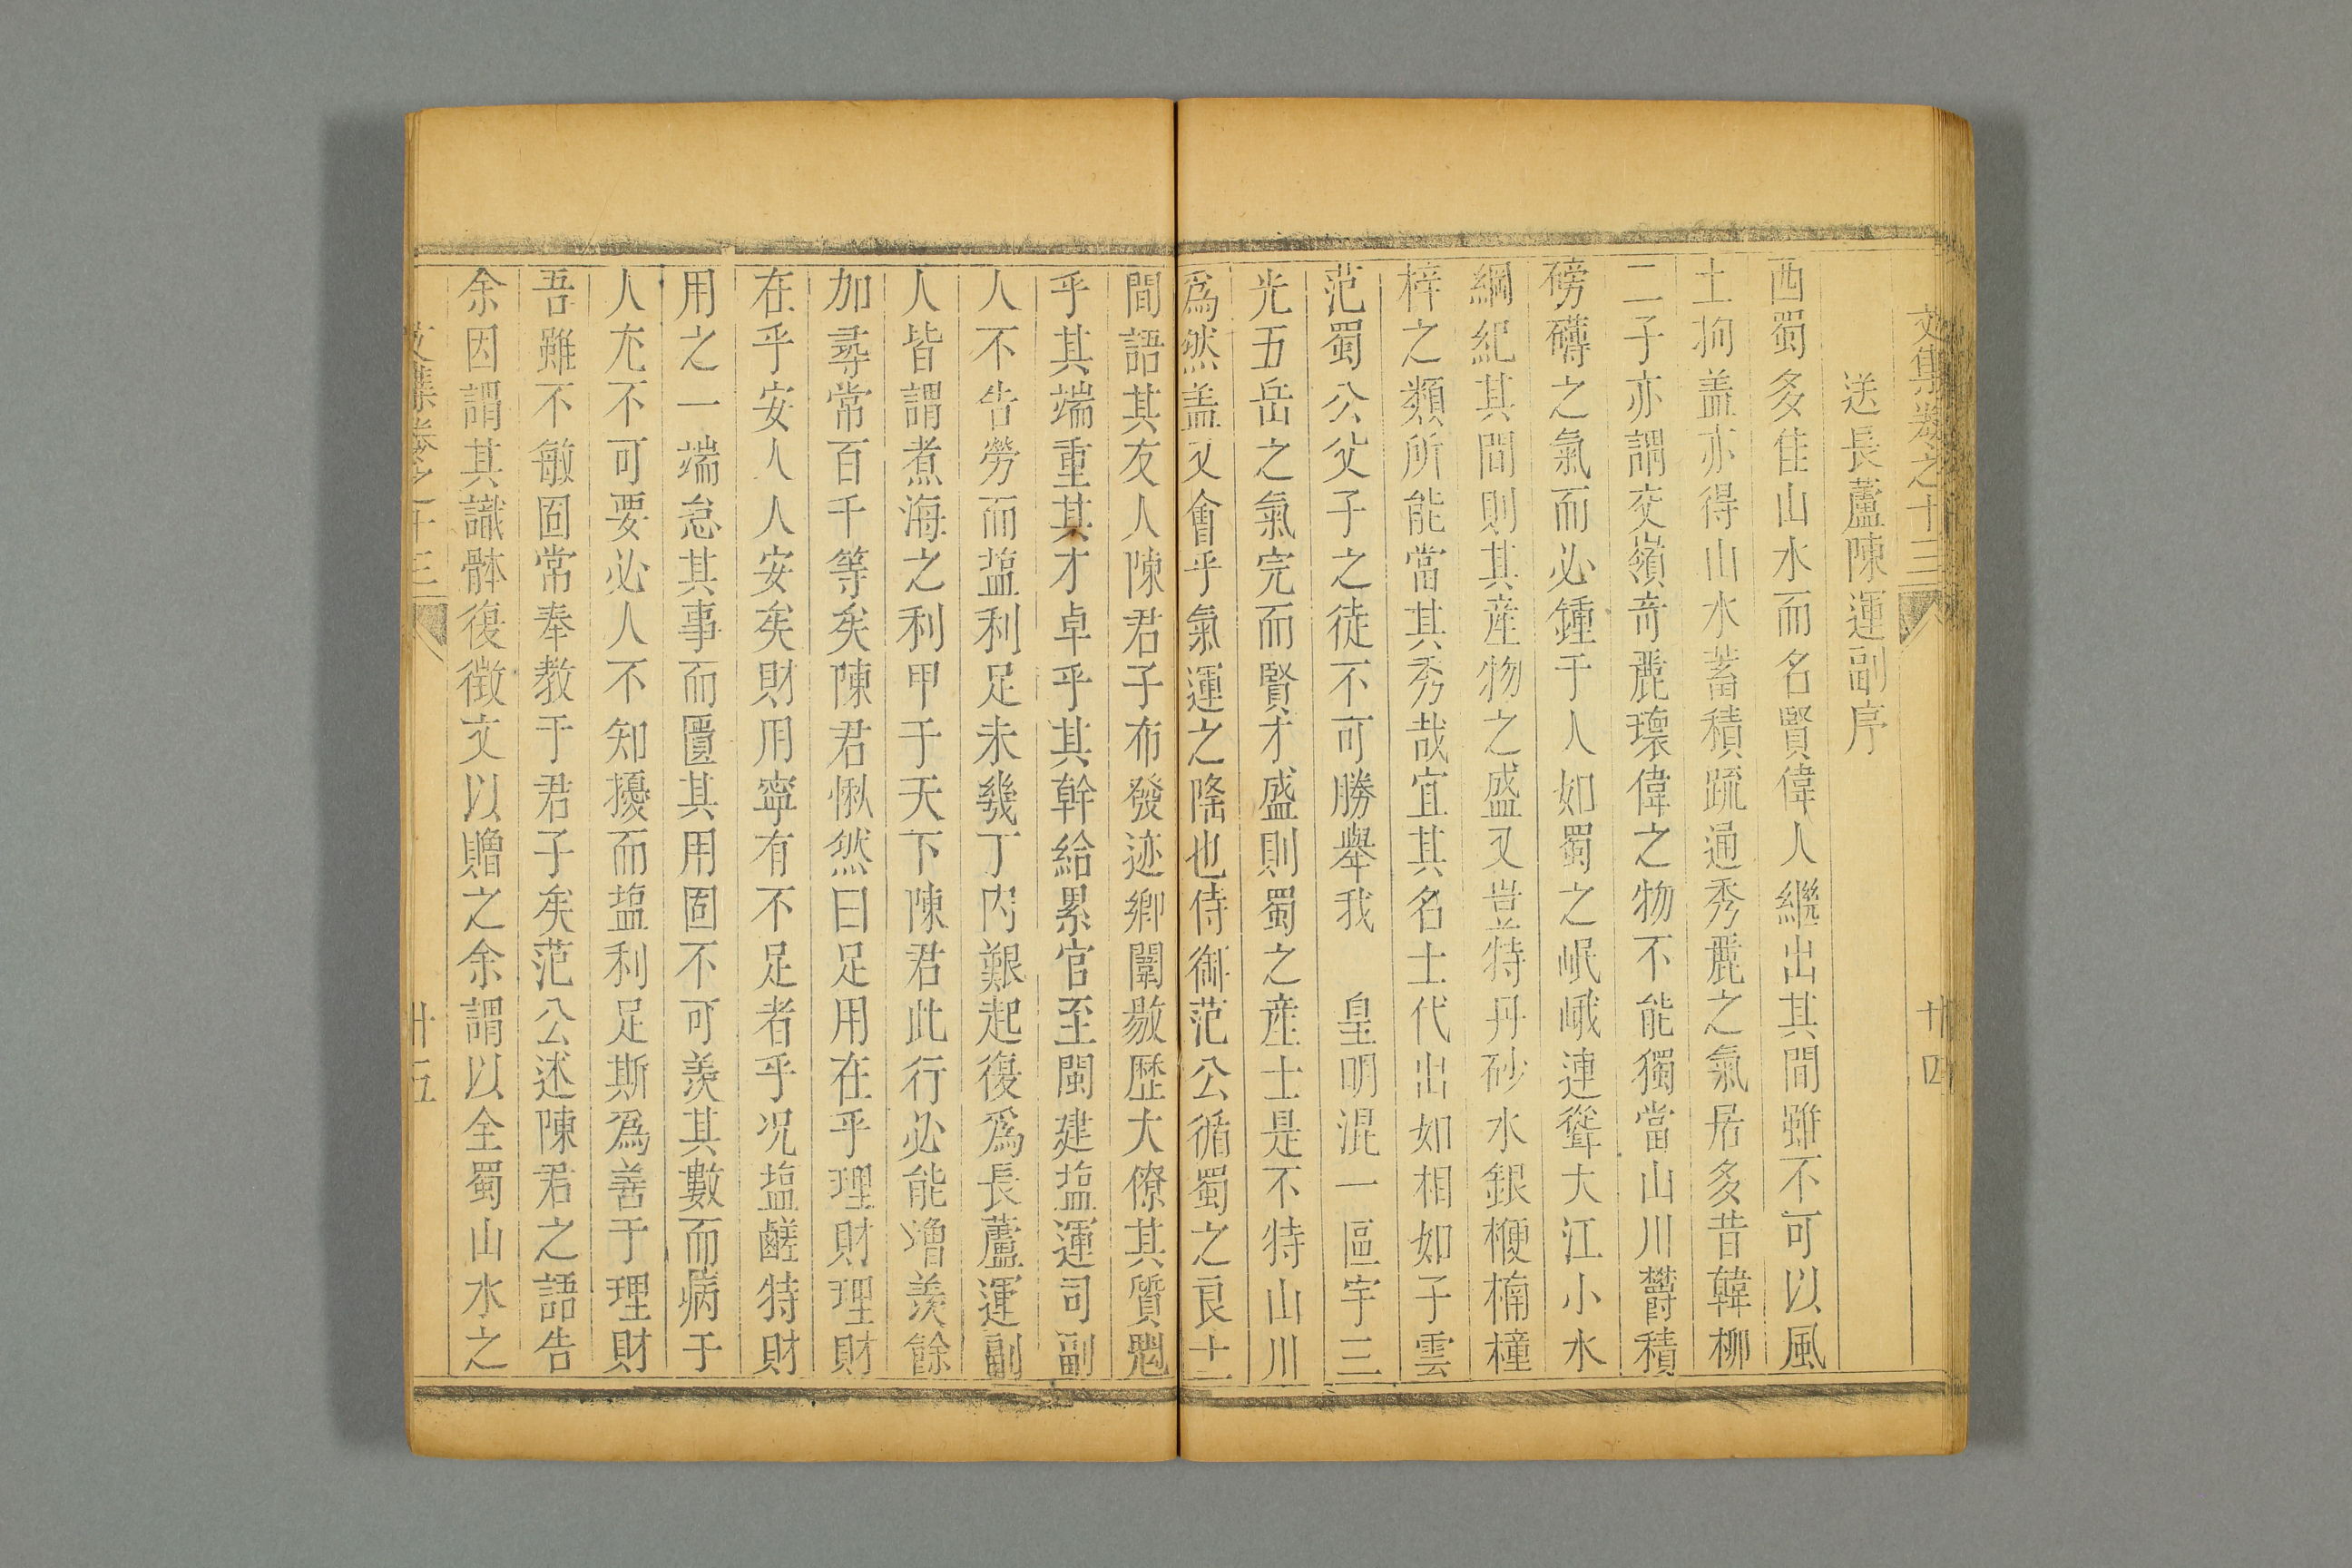 文集卷之十三
十四
送長蘆陳運副序
西蜀多佳山水而名賢偉人繼出其間雖不可以風
土拘盖亦得山水蓄積疏通秀麗之氣居多昔韓柳
二子亦謂交嶺奇麗瓌偉之物不能獨當山川欝積
磅礴之氣而必鍾于人如蜀之岷峨連聳大江小水
綱紀其間則其産物之盛又豈特丹砂水銀楩楠橦
梓之類所能當其秀哉宜其名士代出如相如子雲
范蜀公父子之徒不可勝舉我　皇明混一區宇三
光五岳之氣完而賢才盛則蜀之産士是不特山川
爲然盖又會乎氣運之隆也侍御范公循蜀之良士
間語其友人陳君子布發迹鄉闈敭歷大僚其質魁
乎其端重其才卓乎其幹給累官至閩建塩運司副
人不告勞而塩利足未幾丁内艱起復爲長蘆運副
人皆謂煮海之利甲于天下陳君此行必能增羨餘
加尋常百千等矣陳君愀然曰足用在乎理財理財
在乎安人人安矣財用寧有不足者乎况塩鹺特財
用之一端怠其事而匱其用固不可羨其數而病于
人尤不可要必人不知擾而塩利足斯爲善于理財
吾雖不敏固常奉教于君子矣范公述陳君之語告
余因謂其識體復徵文以贈之余謂以全蜀山水之
文集卷之十三
十五